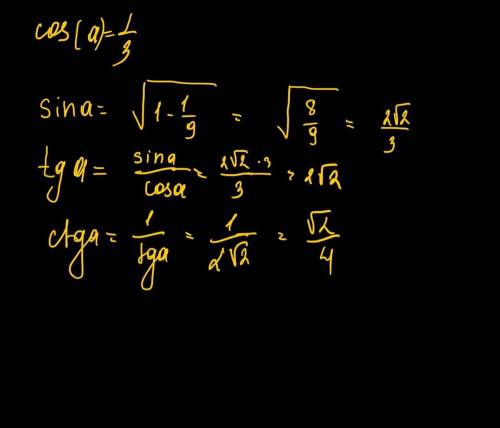 cos(a)=1/3
sin a = √(1 - 1/9) = √(8/9) = 2√2/3
tg a = sin a/cos a = 2√2 · 3/3 = 2√2
ctga = 1/tga = 1/2√2 = √2/4